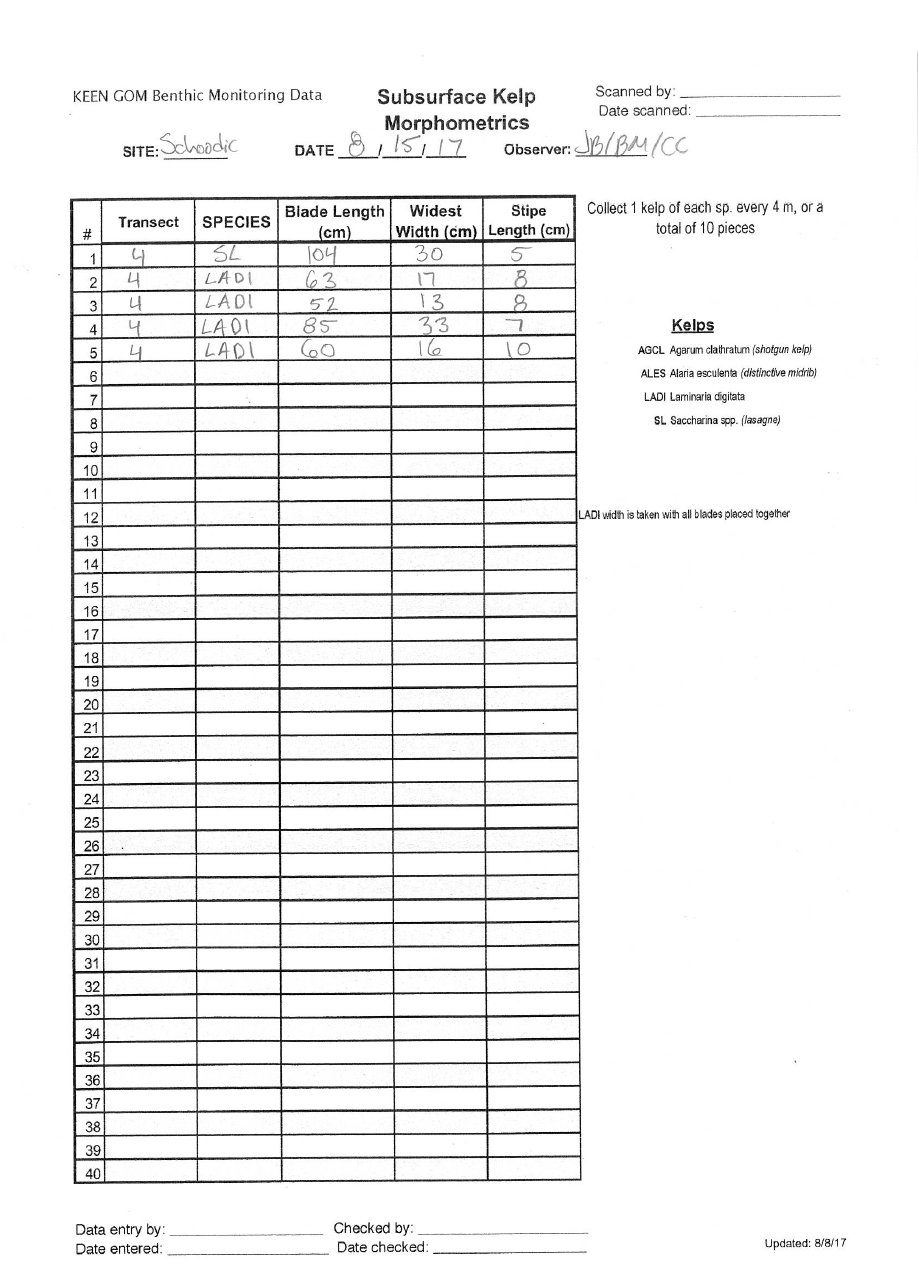 KEEN GOM Benthic Monitoring Data
Subsurface Kelp
Morphometrics
Scanned by:
Date scanned:
SITE: Schoodic DATE 8 / 15 / 17 Observer: JB/BM/CC
# Transect SPECIES Blade Length (cm) Widest Width (cm) Stipe Length (cm)
1 4 SL 104 30 5
2 4 LADI 63 17 8
3 4 LADI 52 13 8
4 4 LADI 85 33 7
5 4 LADI 60 16 10
6
7
8
9
10
11
12
13
14
15
16
17
18
19
20
21
22
23
24
25
26
27
28
29
30
31
32
33
34
35
36
37
38
39
40
Collect 1 kelp of each sp. every 4 m, or a
total of 10 pieces
Kelps
AGCL Agarum clathratum (shotgun kelp)
ALES Alaria esculenta (distinctive midrib)
LADI Laminaria digitata
SL Saccharina spp. (lasagne)
LADI width is taken with all blades placed together
Data entry by: Checked by:
Date entered: Date checked:
Updated: 8/8/17